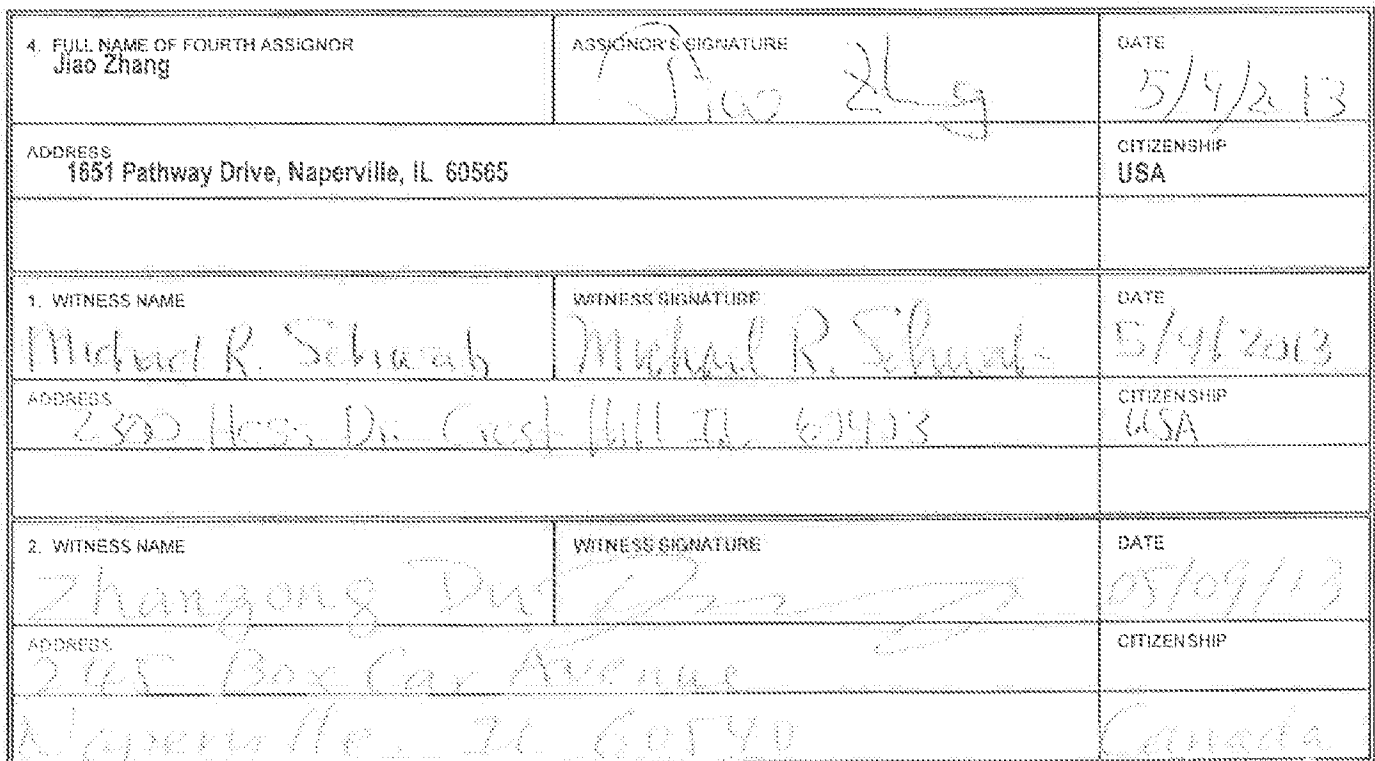 4. FULL NAME OF FOURTH ASSIGNOR
Jiao Zhang
ASSIGNOR'S SIGNATURE
Jiao Zhg
DATE
5/9/2013
ADDRESS
1651 Pathway Drive, Naperville, IL 60565
CITIZENSHIP
USA
1. WITNESS NAME
Michael R. Schwab
WITNESS SIGNATURE
Michael R. Schwab
DATE
5/9/2013
ADDRESS
2300 Hoss Dr. Crest Hill IL 60403
CITIZENSHIP
USA
2. WITNESS NAME
Zhangong Du
WITNESS SIGNATURE
DATE
05/09/13
ADDRESS
245 Box Car Avenue
Naperville, IL 60540
CITIZENSHIP
Canada